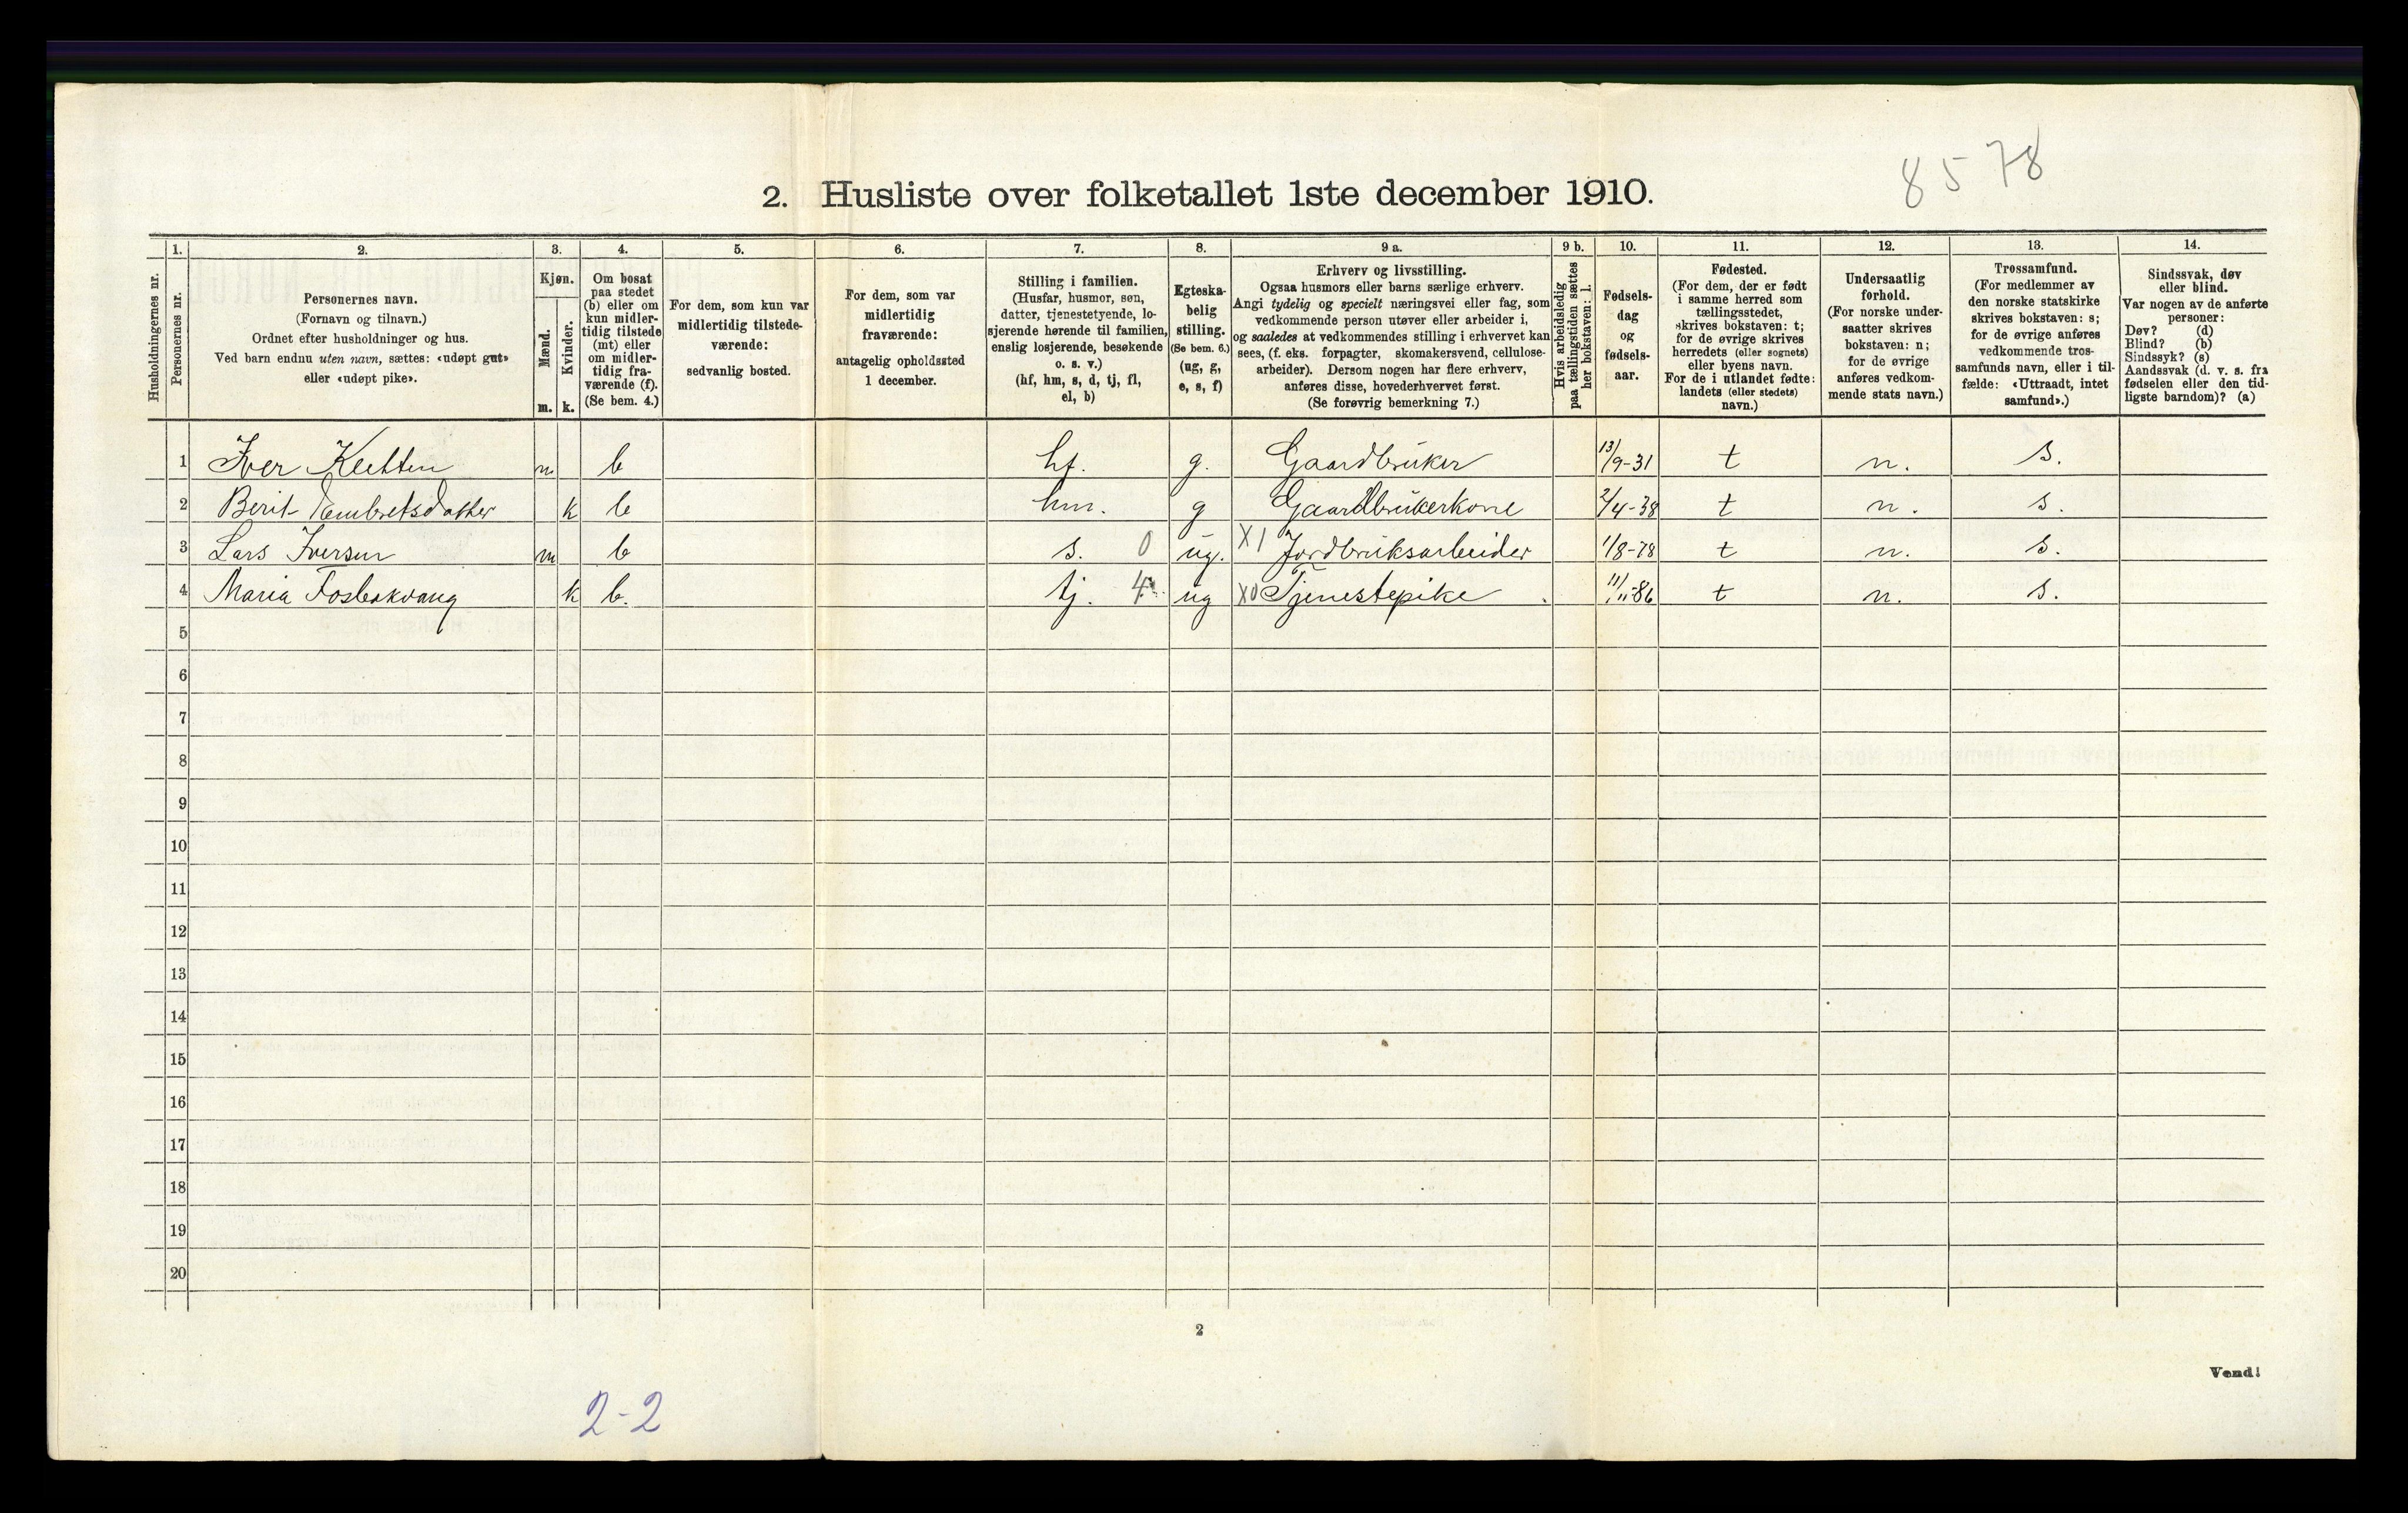 8578
2. Husliste over folketallet 1ste december 1910.
1. 2. 3. 4. 5. 6. 7. 8. 9 a. 9 b. 10. 11. 12. 13. 14.
Husholdningernes nr.
Personernes nr.
Personernes navn.
(Fornavn og tilnavn.)
Ordnet efter husholdninger og hus.
Ved barn endnu uten navn, sættes: «udøpt gut»
eller «udøpt pike».
Kjøn.
Mænd.
Kvinder.
m. k.
Om bosat
paa stedet
(b) eller om
kun midler-
tidig tilstede
(mt) eller
om midler-
tidig fra-
værende (f).
(Se bem. 4.)
For dem, som kun var
midlertidig tilstede-
værende:
sedvanlig bosted.
For dem, som var
midlertidig
fraværende:
antagelig opholdssted
1 december.
Stilling i familien.
(Husfar, husmor, søn,
datter, tjenestetyende, lo-
sjerende hørende til familien,
enslig losjerende, besøkende
o. s. v.)
(hf, hm, s, d, tj, fl,
el, b)
Egteska-
belig
stilling.
(Se bem. 6.)
(ug, g,
e, s, f)
Erhverv og livsstilling.
Ogsaa husmors eller barns særlige erhverv.
Angi tydelig og specielt næringsvei eller fag, som
vedkommende person utøver eller arbeider i,
og saaledes at vedkommendes stilling i erhvervet kan
sees, (f. eks. forpagter, skomakersvend, cellulose-
arbeider). Dersom nogen har flere erhverv,
anføres disse, hovederhvervet først.
(Se forøvrig bemerkning 7.)
Hvis arbeidsledig
paa tællingstiden sættes
her bokstaven: l.
Fødsels-
dag
og
fødsels-
aar.
Fødested.
(For dem, der er født
i samme herred som
tællingsstedet,
skrives bokstaven: t;
for de øvrige skrives
herredets (eller sognets)
eller byens navn.
For de i utlandet fødte:
landets (eller stedets)
navn.)
Undersaatlig
forhold.
(For norske under-
saatter skrives
bokstaven: n;
for de øvrige
anføres vedkom-
mende stats navn.)
Trossamfund.
(For medlemmer av
den norske statskirke
skrives bokstaven: s;
for de øvrige anføres
vedkommende tros-
samfunds navn, eller i til-
fælde: «Uttraadt, intet
samfund».)
Sindssvak, døv
eller blind.
Var nogen av de anførte
personer:
Døv? (d)
Blind? (b)
Sindssyk? (s)
Aandssvak (d. v. s. fra
fødselen eller den tid-
ligste barndom)? (a)
1 Iver Kletten m b hf. g. Gaardbruker 13/9-31 t n. s.
2 Berit Embretsdatter k b hm. g Gaardbrukerkone 2/4-38 t n. s.
3 Lars Iversen m b s. 0 ug. X1 Jordbruksarbeider 1/8-78 t n. s.
4 Maria Fosbakvang k b. tj. 4 ug X0 Tjenestepike 11/11-86 t n. s.
5
6
7
8
9
10
11
12
13
14
15
16
17
18
19
20
2
Vend!
2-2